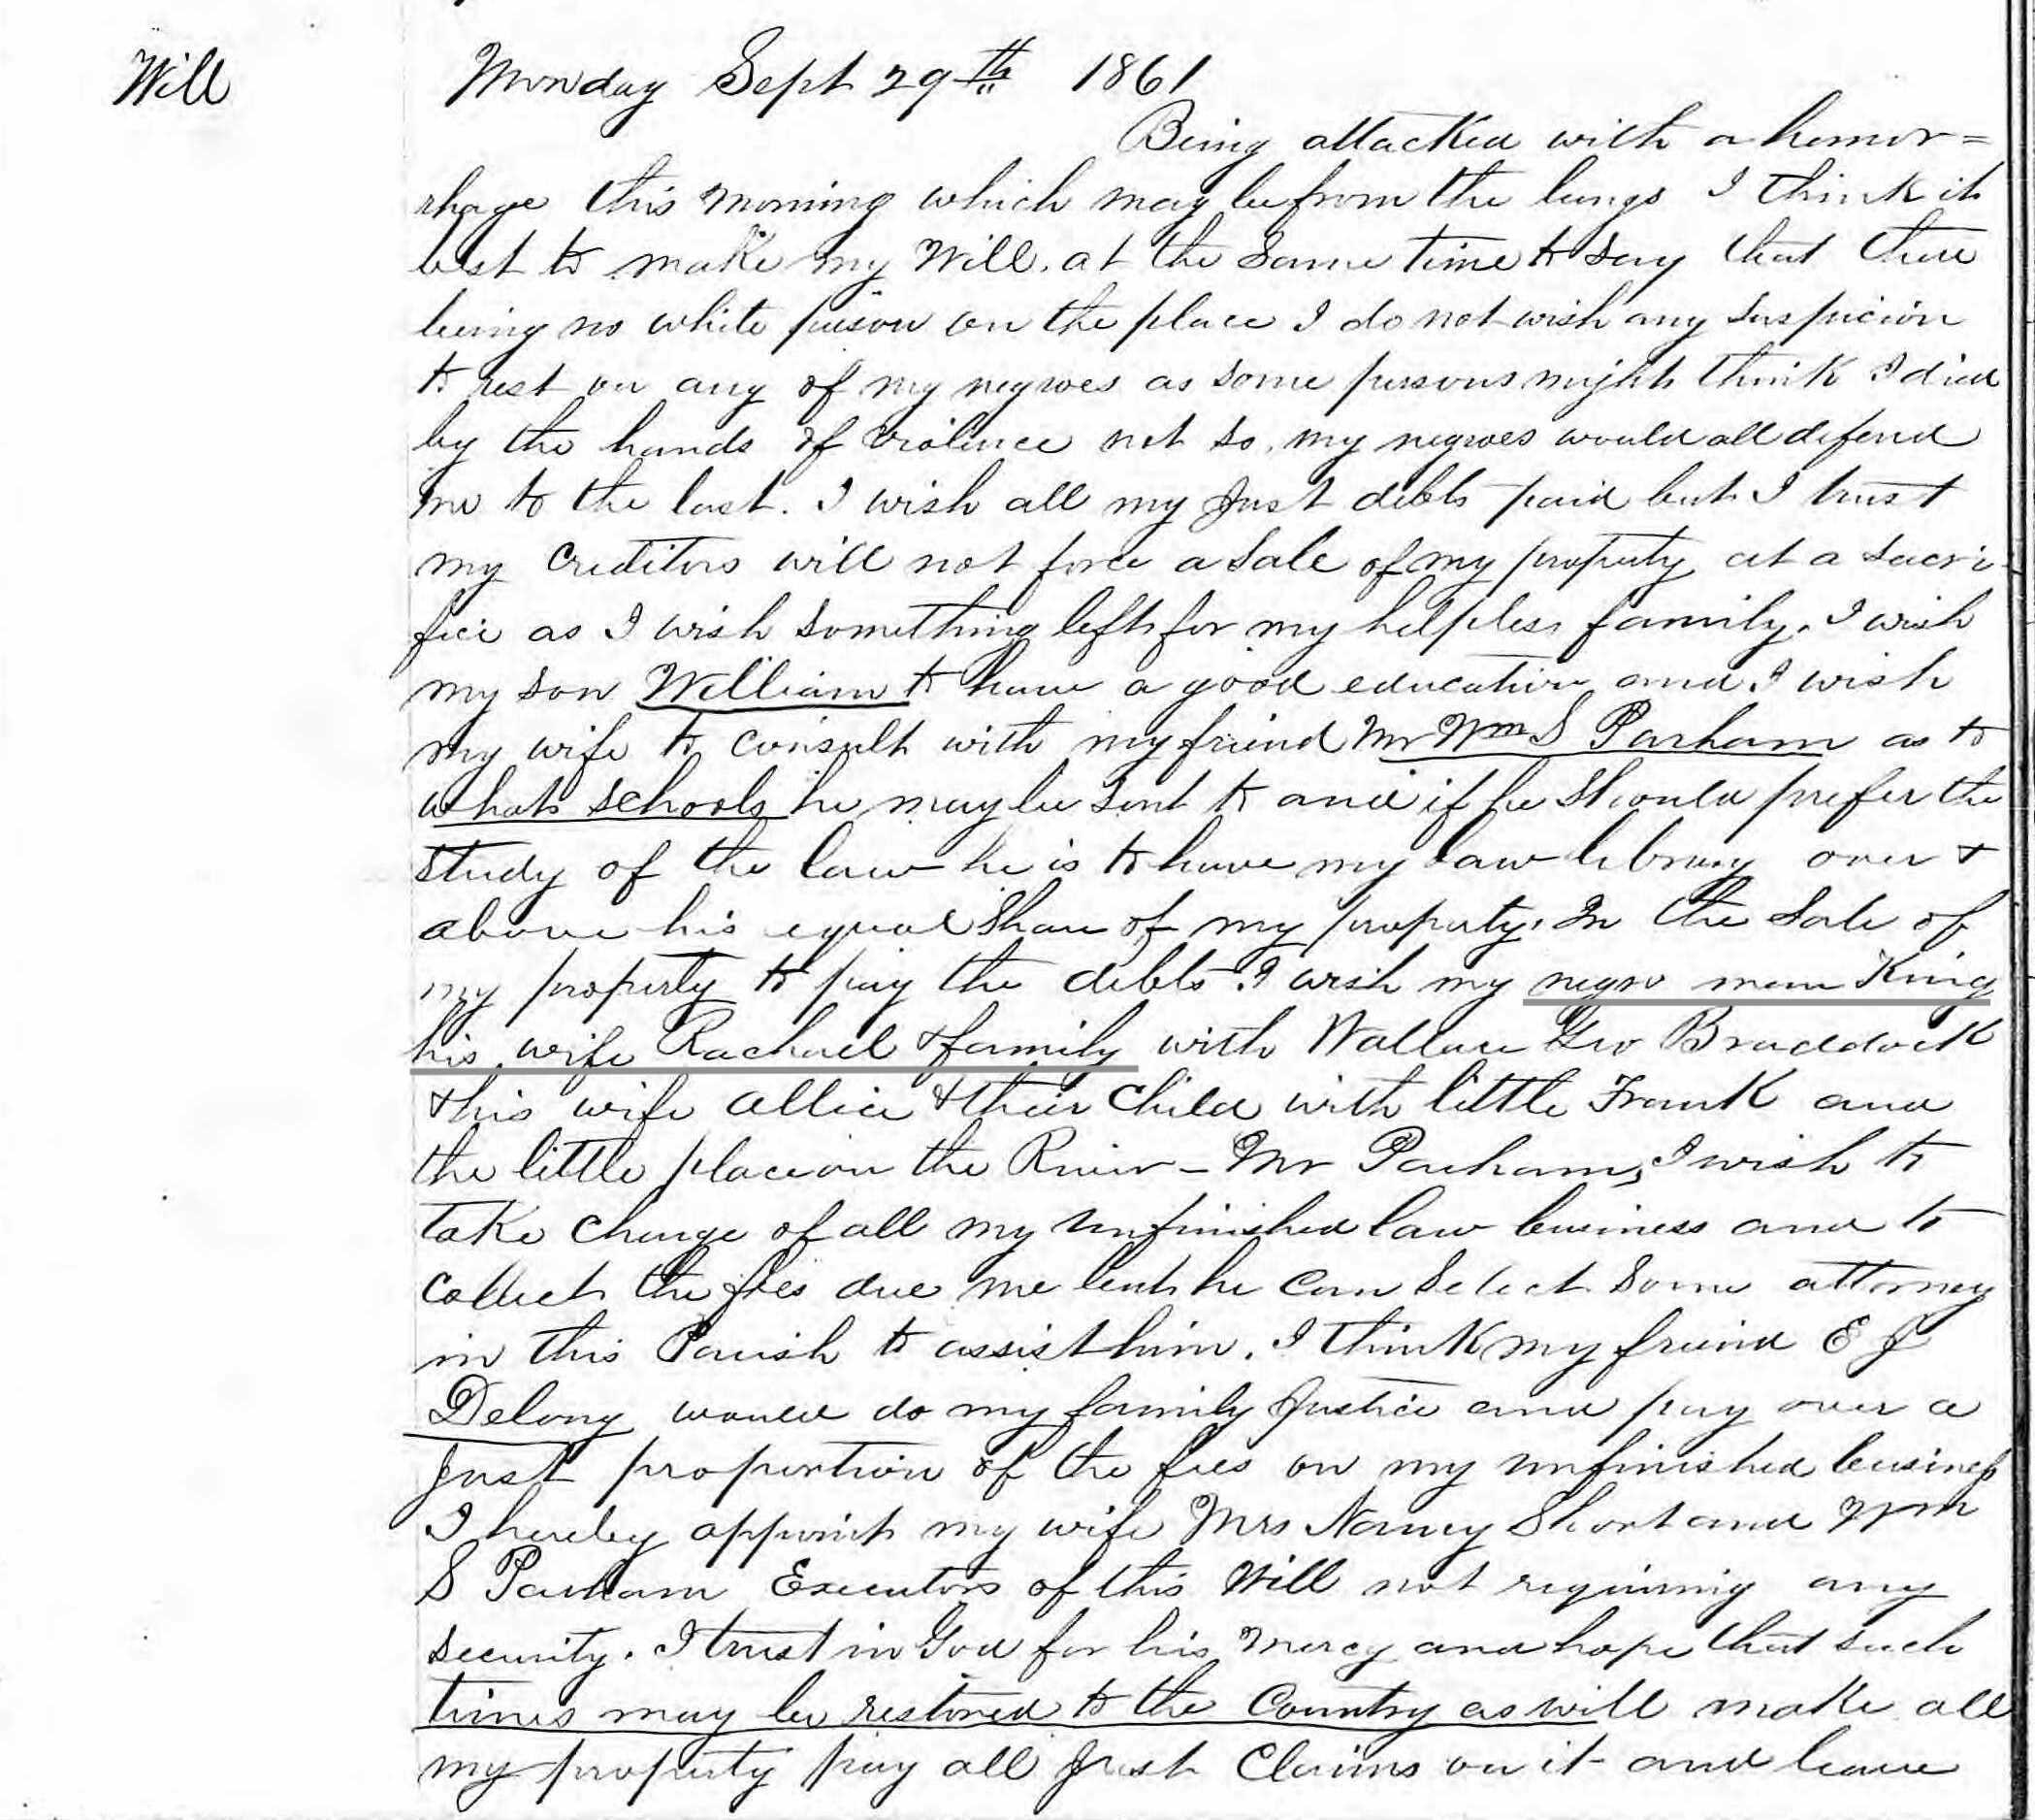 Will
Monday Sept 29th 1861
Being attacked with a hemor=
rhage this morning which may be from the lungs I think it
best to make my Will. at the same time to say that there
being no white person on the place I do not wish any suspicion
to rest on any of my negroes as some persons might think I died
by the hands of violence not so, my negroes would all defend
me to the last. I wish all my just debts paid but I trust
my creditors will not force a sale of my property at a sacri-
fice as I wish something left for my helpless family. I wish
my son William to have a good education and I wish
my wife to consult with my friend Mr Wm S Parham as to
what schools he may be sent to and if he should prefer the
study of the law he is to have my law library over &
above his equal share of my property. In the sale of
my property to pay the debts I wish my negro man King
his wife Rachael & family with Wallace Geo Braddock
& his wife Allice & their child with little Frank and
the little place on the River - Mr Parham, I wish to
take charge of all my unfinished law business and to
collect the fees due me but he can select some attorney
in this Parish to assist him. I think my friend E J
Delony would do my family justice and pay over a
just proportion of the fees on my unfinished business
I hereby appoint my wife Mrs Nancy Short and Wm
S Parham Executors of this Will not requiring any
security. I trust in God for his mercy and hope that such
times may be restored to the Country as will make all
my property pay all just claims on it and leave